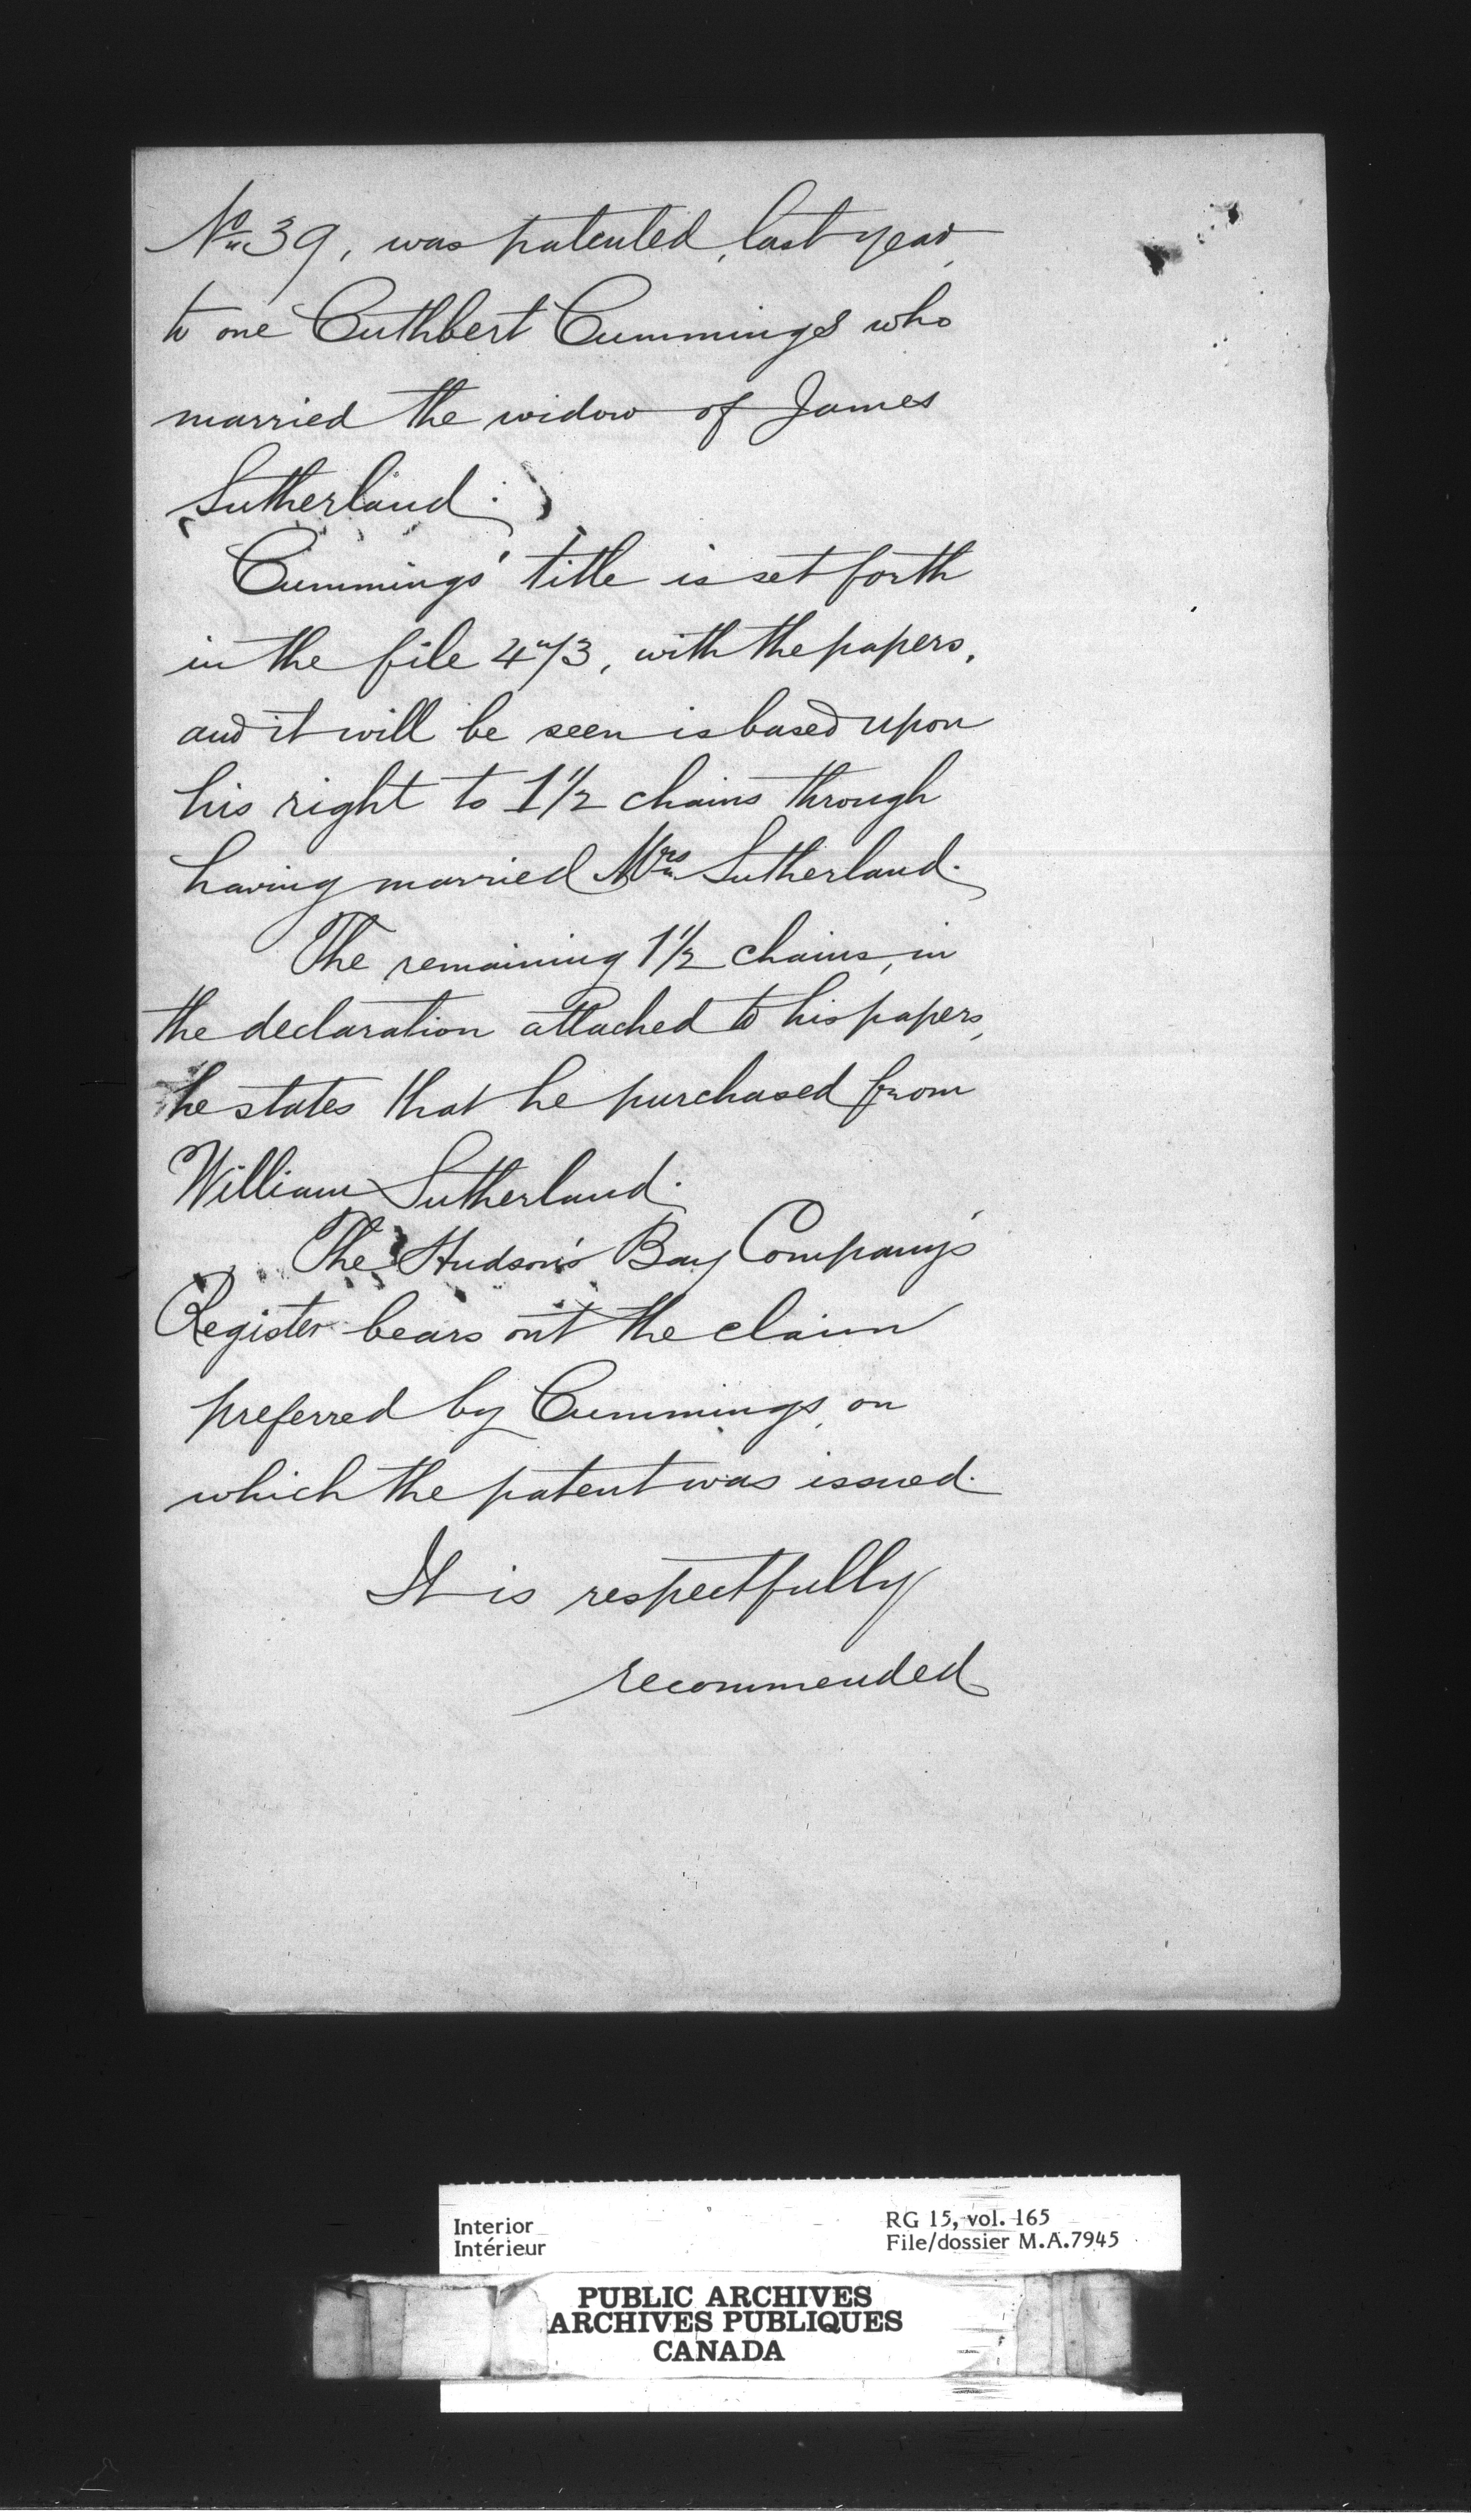 No 39, was patented, last year,
to one Cuthbert Cummings who
married the widow of James
Sutherland.
Cummings' title is set forth
in the file 4"/3, with the papers,
and it will be seen is based upon
his right to 1 1/2 chains through
having married Mrs Sutherland.
The remaining 1 1/2 chains, in
the declaration attached to his papers,
he states that he purchased from
William Sutherland.
The Hudson's Bay Company's
Register bears out the claim
preferred by Cummings, on
which the patent was issued.
It is respectfully
recommended
Interior
Intérieur
RG 15, vol. 165
File/dossier M.A.7945
PUBLIC ARCHIVES
ARCHIVES PUBLIQUES
CANADA